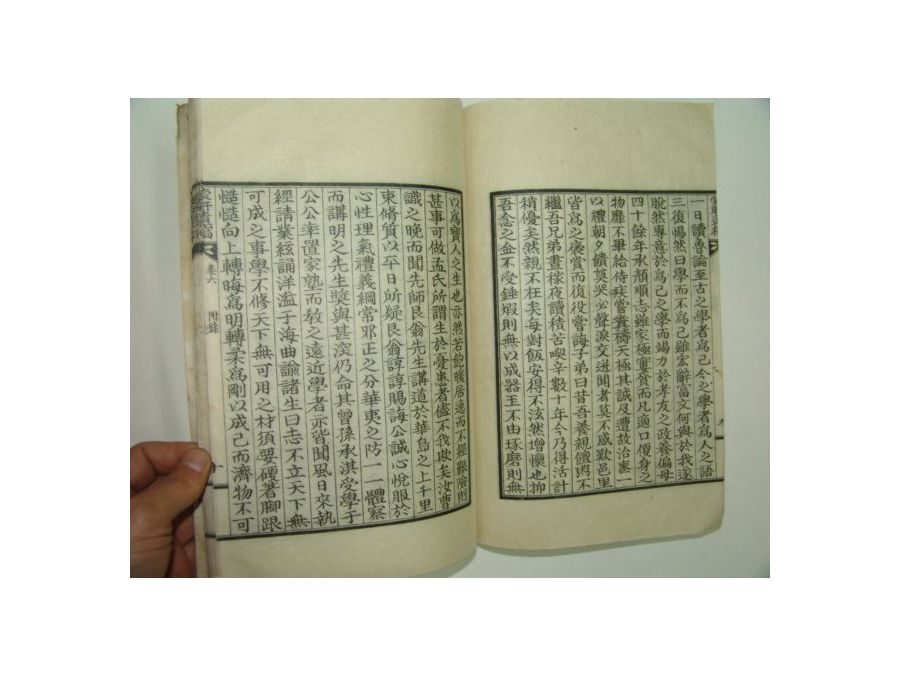 一日讀魯論至古之學者爲己今之學者爲人之語
三復惕然曰學而不爲己雖宏辭富文何與於我遂
脫然專意於爲己之學而竭力於孝友之政養偏母
四十餘年承顏順志雖家極窶貧而凡適口便身之
物靡不畢給侍疾嘗糞禱天極其誠及遭故治密一
以禮朝夕饋奠哭必聲淚交迸聞者莫不感歎邑里
皆爲之褒賞而復役嘗誨子弟曰昔吾養親饘粥不
繼吾兄弟晝稼夜讀積苦喫辛數十年今乃得活計
稍優矣然親不在矣每對飯安得不泫然增懷也抑
吾念之金不受錘煆則無以成器玉不由琢磨則無
以爲寶人之生也亦然若飽暖居逸而不經艱險則
甚事可做孟氏所謂生於憂患者儘不我欺矣汝曹
識之晚而聞先師艮翁先生講道於華島之上千里
束脩質以平日所疑艮翁諄諄賜誨公誠心悅服於
心性理氣禮義綱常邪正之分華夷之防一一體察
而講明之先生奬與甚深仍命其曾孫承淇受學于
公公幸置家塾而敎之遠近學者亦皆聞風日來執
經請業絃誦洋溢于海曲諭諸生曰志不立天下無
可成之事學不修天下無可用之材須要硬著腳跟
慥慥向上轉晦爲明轉柔爲剛以成己而濟物不可
卷六
附錄